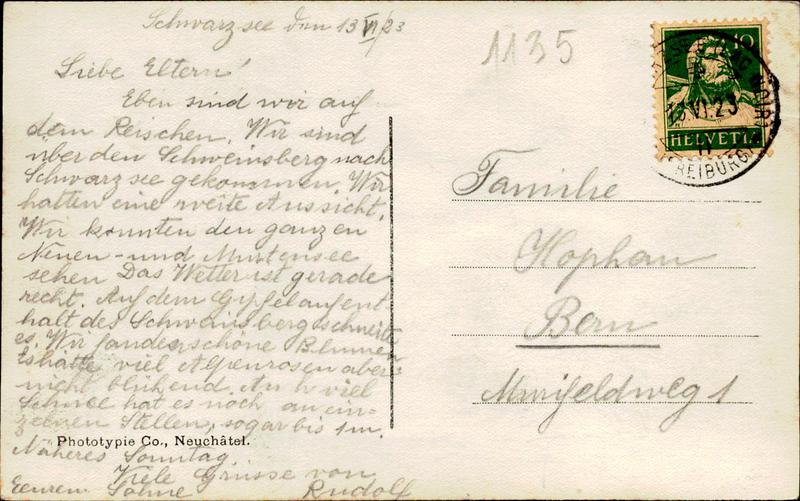 Schwarzsee den 13 VI/23
1135
Liebe Eltern!
Eben sind wir auf
dem Reischen. Wir sind
über den Schweinsberg nach
Schwarzsee gekommen. Wir
hatten eine weite Aussicht.
Wir konnten den ganzen
Neuen- und Murtensee
sehen Das Wetter ist gerade
recht. Auf dem Gipfelaufent-
halt des Schweinsberg schneite
es. Wir fanden schöne Blumen
Es hatte viel Alpenrosen aber
nicht blühend. Auch viel
Schnee hat es noch an ein-
zelnen Stellen, sogar bis 1m.
Phototypie Co., Neuchâtel.
Näheres Sonntag
Viele Grüsse von
Eurem Sohne Rudolf
Familie
Hophan
Bern
Murifeldweg 1
10
HELVETIA
13.VI.23
(FREIBURG)